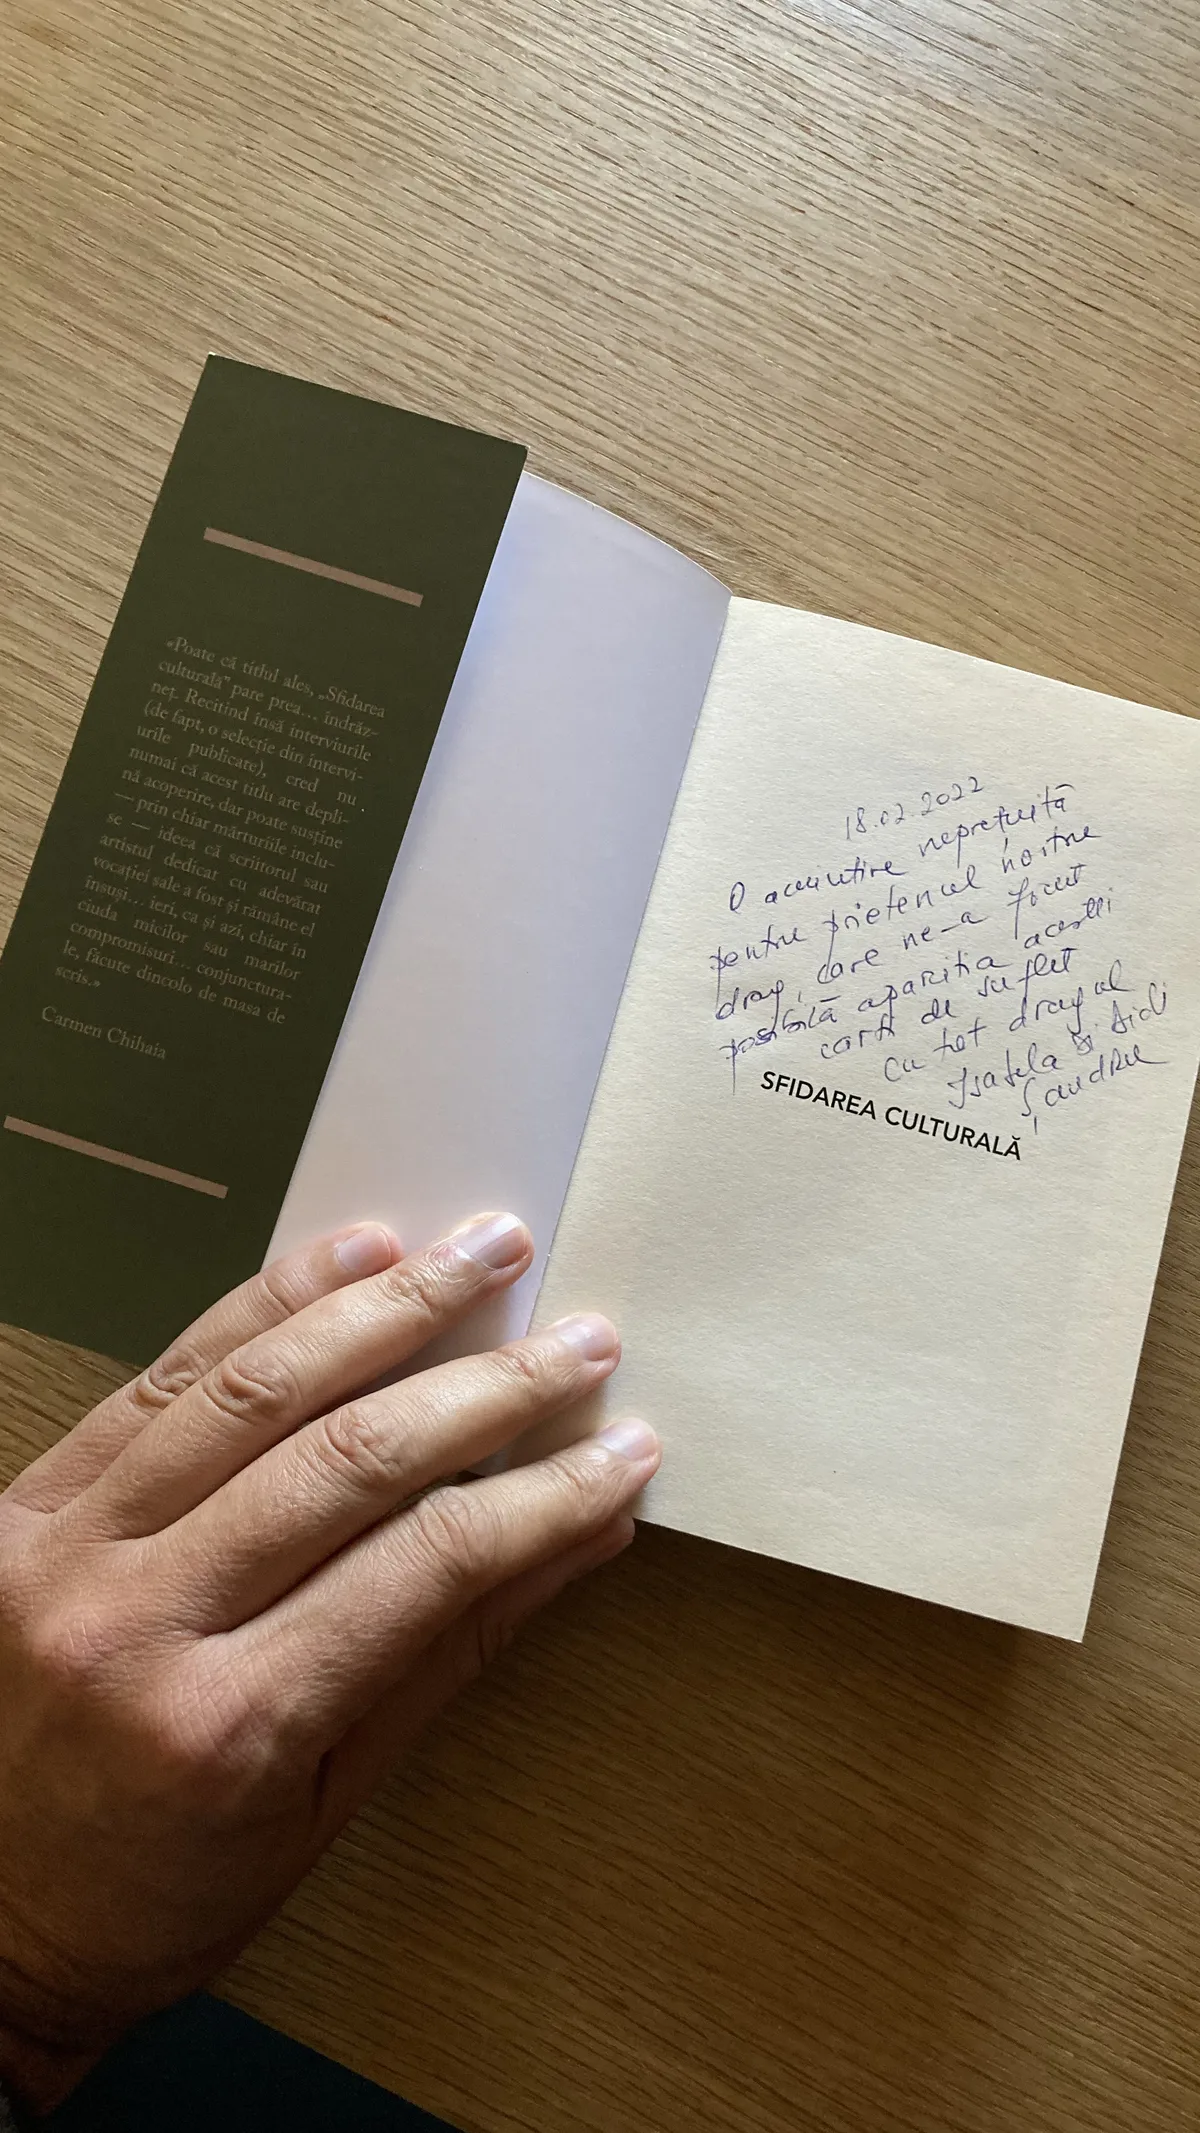 «Poate că titlul ales, „Sfidarea
culturală” pare prea... îndrăz-
neț. Recitind însă interviurile
(de fapt, o selecție din intervi-
urile publicate), cred nu
numai că acest titlu are depli-
nă acoperire, dar poate susține
— prin chiar mărturiile inclu-
se — ideea că scriitorul sau
artistul dedicat cu adevărat
vocației sale a fost și rămâne el
însuși... ieri, ca și azi, chiar în
ciuda micilor sau marilor
compromisuri... conjunctura-
le, făcute dincolo de masa de
scris.»
Carmen Chihaia
18.02.2022
O amintire neprețuită
pentru prietenul nostru
drag, care ne-a făcut
posibilă apariția acestei
cărți de suflet
Cu tot dragul
și
Șandru
SFIDAREA CULTURALĂ